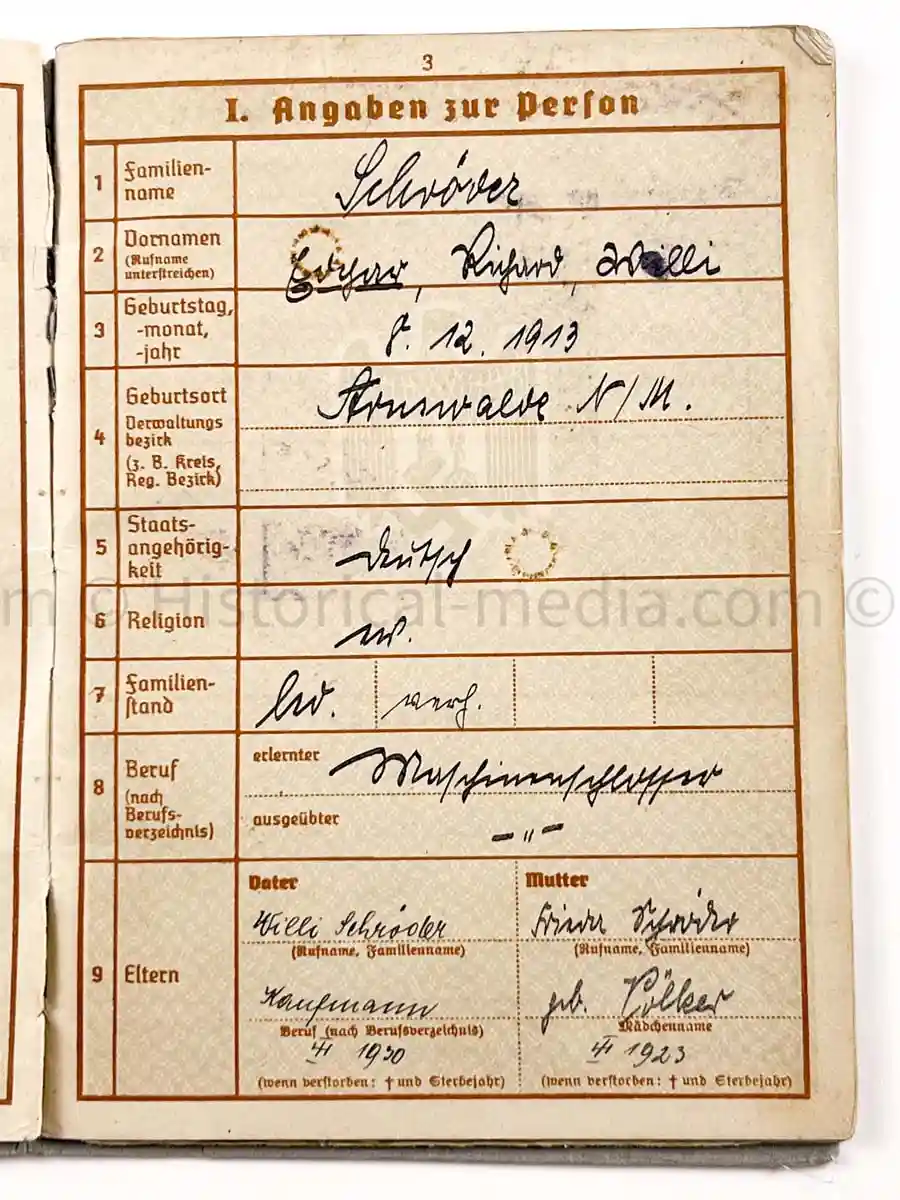 3
I. Angaben zur Person
1 Familien-
name
Schröder
2 Vornamen
(Rufname
unterstreichen)
Edgar, Richard, Willi
3 Geburtstag,
-monat,
-jahr
8. 12. 1913
4 Geburtsort
Verwaltungs
bezirk
(z. B. Kreis,
Reg. Bezirk)
Arnswalde N/M.
5 Staats-
angehörig-
keit
deutsch
m © Historical-media.com ©
6 Religion
ev.
7 Familien-
stand
led. verh.
8 Beruf
(nach
Berufs-
verzeichnis)
erlernter Maschinenschlosser
ausgeübter – " –
9 Eltern
Vater
Willi Schröder
(Rufname, Familienname)
Kaufmann
Beruf (nach Berufsverzeichnis)
1930
(wenn verstorben: † und Sterbejahr)
Mutter
Frieda Schröder
(Rufname, Familienname)
geb. Völker
Mädchenname
1923
(wenn verstorben: † und Sterbejahr)